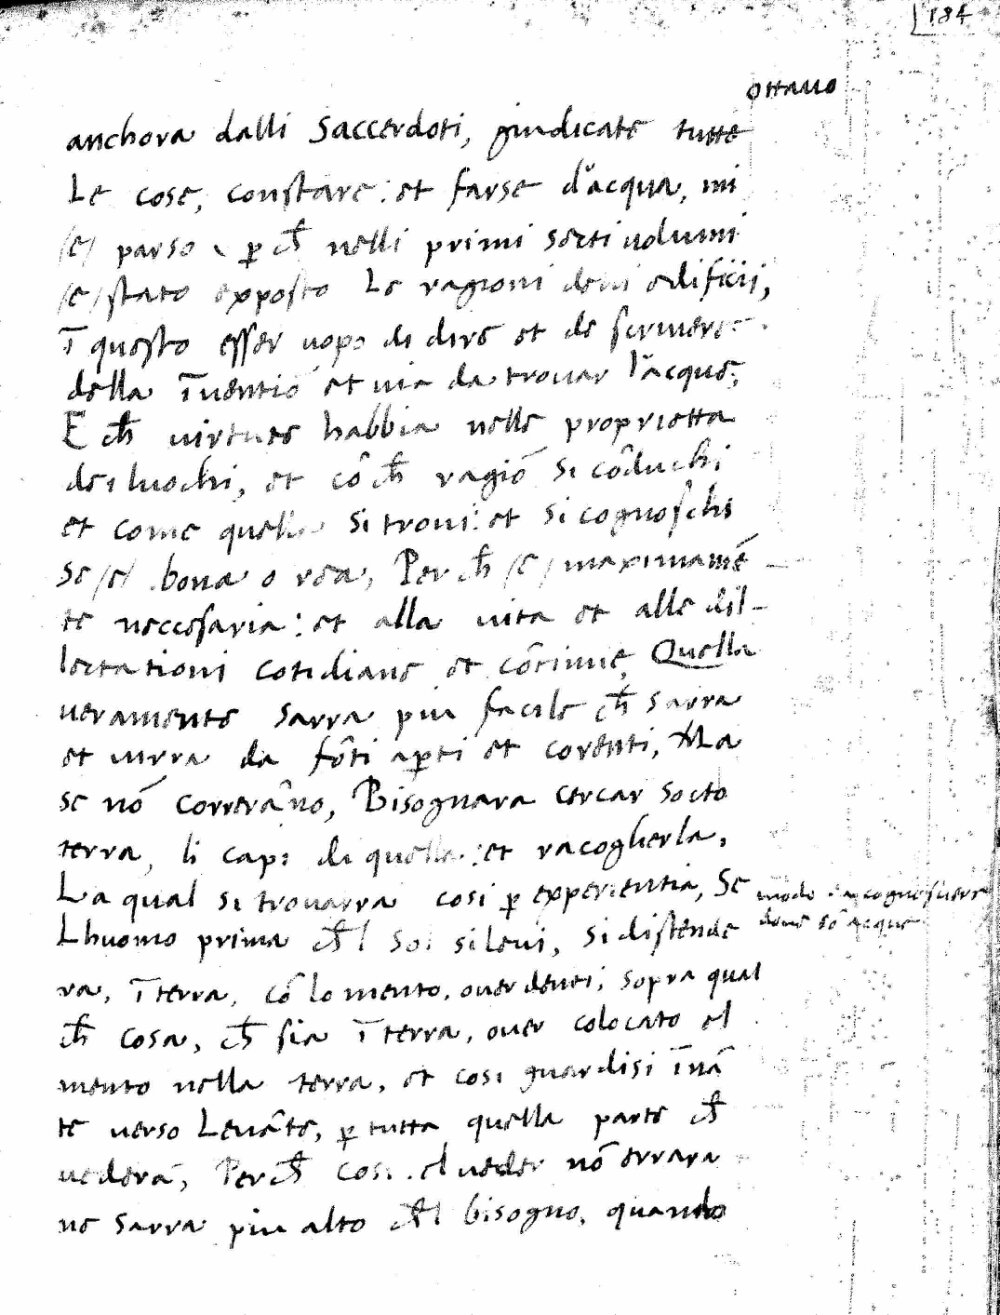 184
ottauo
anchora dalli Saccerdoti, giudicate tutte
Le cose, constare: et farse d'acqua, mi
(e) parso, p ch nelli primi setti uolumi
(e) stato exposto Le ragioni deni edificii,
ī questo esser uopo di dire et de scriuere
della īuentiō et uia da trouar l'acque,
E ch uirtute habbia nelle proprietta
dei luochi, et cō ch ragiō si cōduchi
et come quella si troui: et si cognoschi
se (e) bona o rea, Perch (e) maximamē
te neccesaria: et alla uita et alle dil-
lectationi cotidiane et cōtinue, Quella
ueramente sarra piu facile ch sarra
et uirra da fōti apti et corenti, Ma
se nō correrāno, Bisognara cercar socto
terra, li capi di quella: et racogherla,
La qual si trouarra cosi p experientia, Se
modo da cognosciere
doue sō acque
Lhuomo prima chl sol si leui, si distende
ra, ī terra, cō lo mento, ouer denti, sopra qual
ch cosa, ch sia ī terra, ouer colocato el
mento nella terra, et cosi guardisi īnā
te uerso Leuāte, p tutta quella parte ch
uederā, Perch cosi el ueder nō errara
ne sarra piu alto chl bisogno, quando